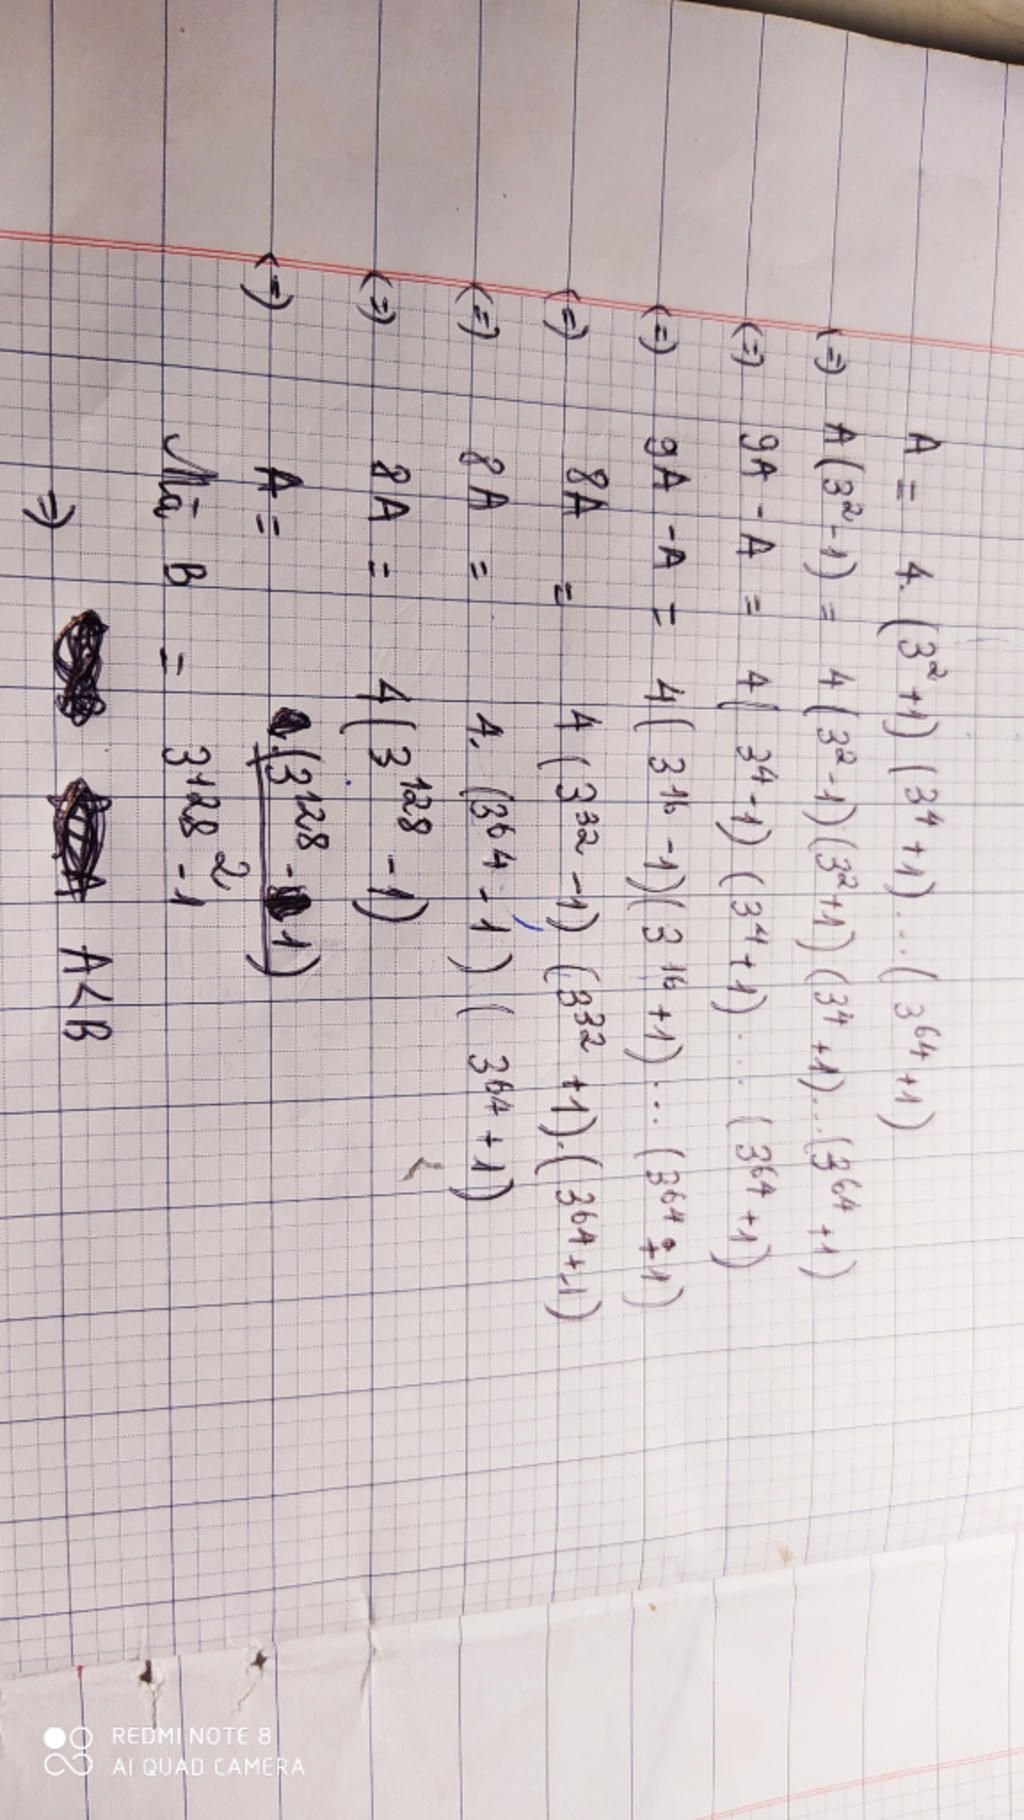 A = 4. (3² +1) (3⁴ +1)... (3⁶⁴ +1)
(=) A(3² -1) = 4(3² -1)(3² +1) (3⁴ +1)...(3⁶⁴ +1)
(=) 9A - A = 4( 3⁴ -1) (3⁴ +1) .... (3⁶⁴ +1)
(=) 9A -A = 4( 3¹⁶ -1)(3¹⁶ +1).... (3⁶⁴ +1)
(=) 8A = 4 (3³² -1) (3³² +1).(3⁶⁴ +1)
(=) 8A = 4. (3⁶⁴ -1) ( 3⁶⁴ +1)
(=) 8A = 4(3¹²⁸ -1)
(=) A = (3¹²⁸ - 1)
2
Mà B = 3¹²⁸ -1
=) A<B
REDMI NOTE 8
AI QUAD CAMERA